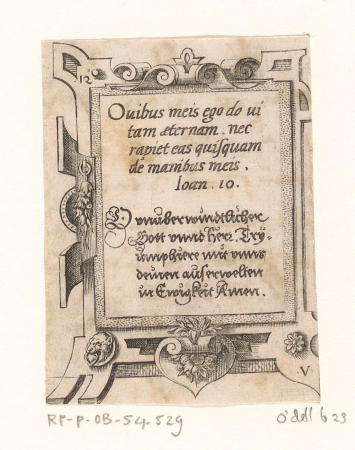 12
Ovibus meis ego do vi
tam æternam. nec
rapiet eas quisquam
de manibus meis.
Ioan. 10.
O vnüberwindtlicher
Gott vnnd Herr. Try,
umphiere mit vnns
deinen außerwelten
in Ewigkeit Amen.
V
RP-P-OB-54.529
O'dell b 23